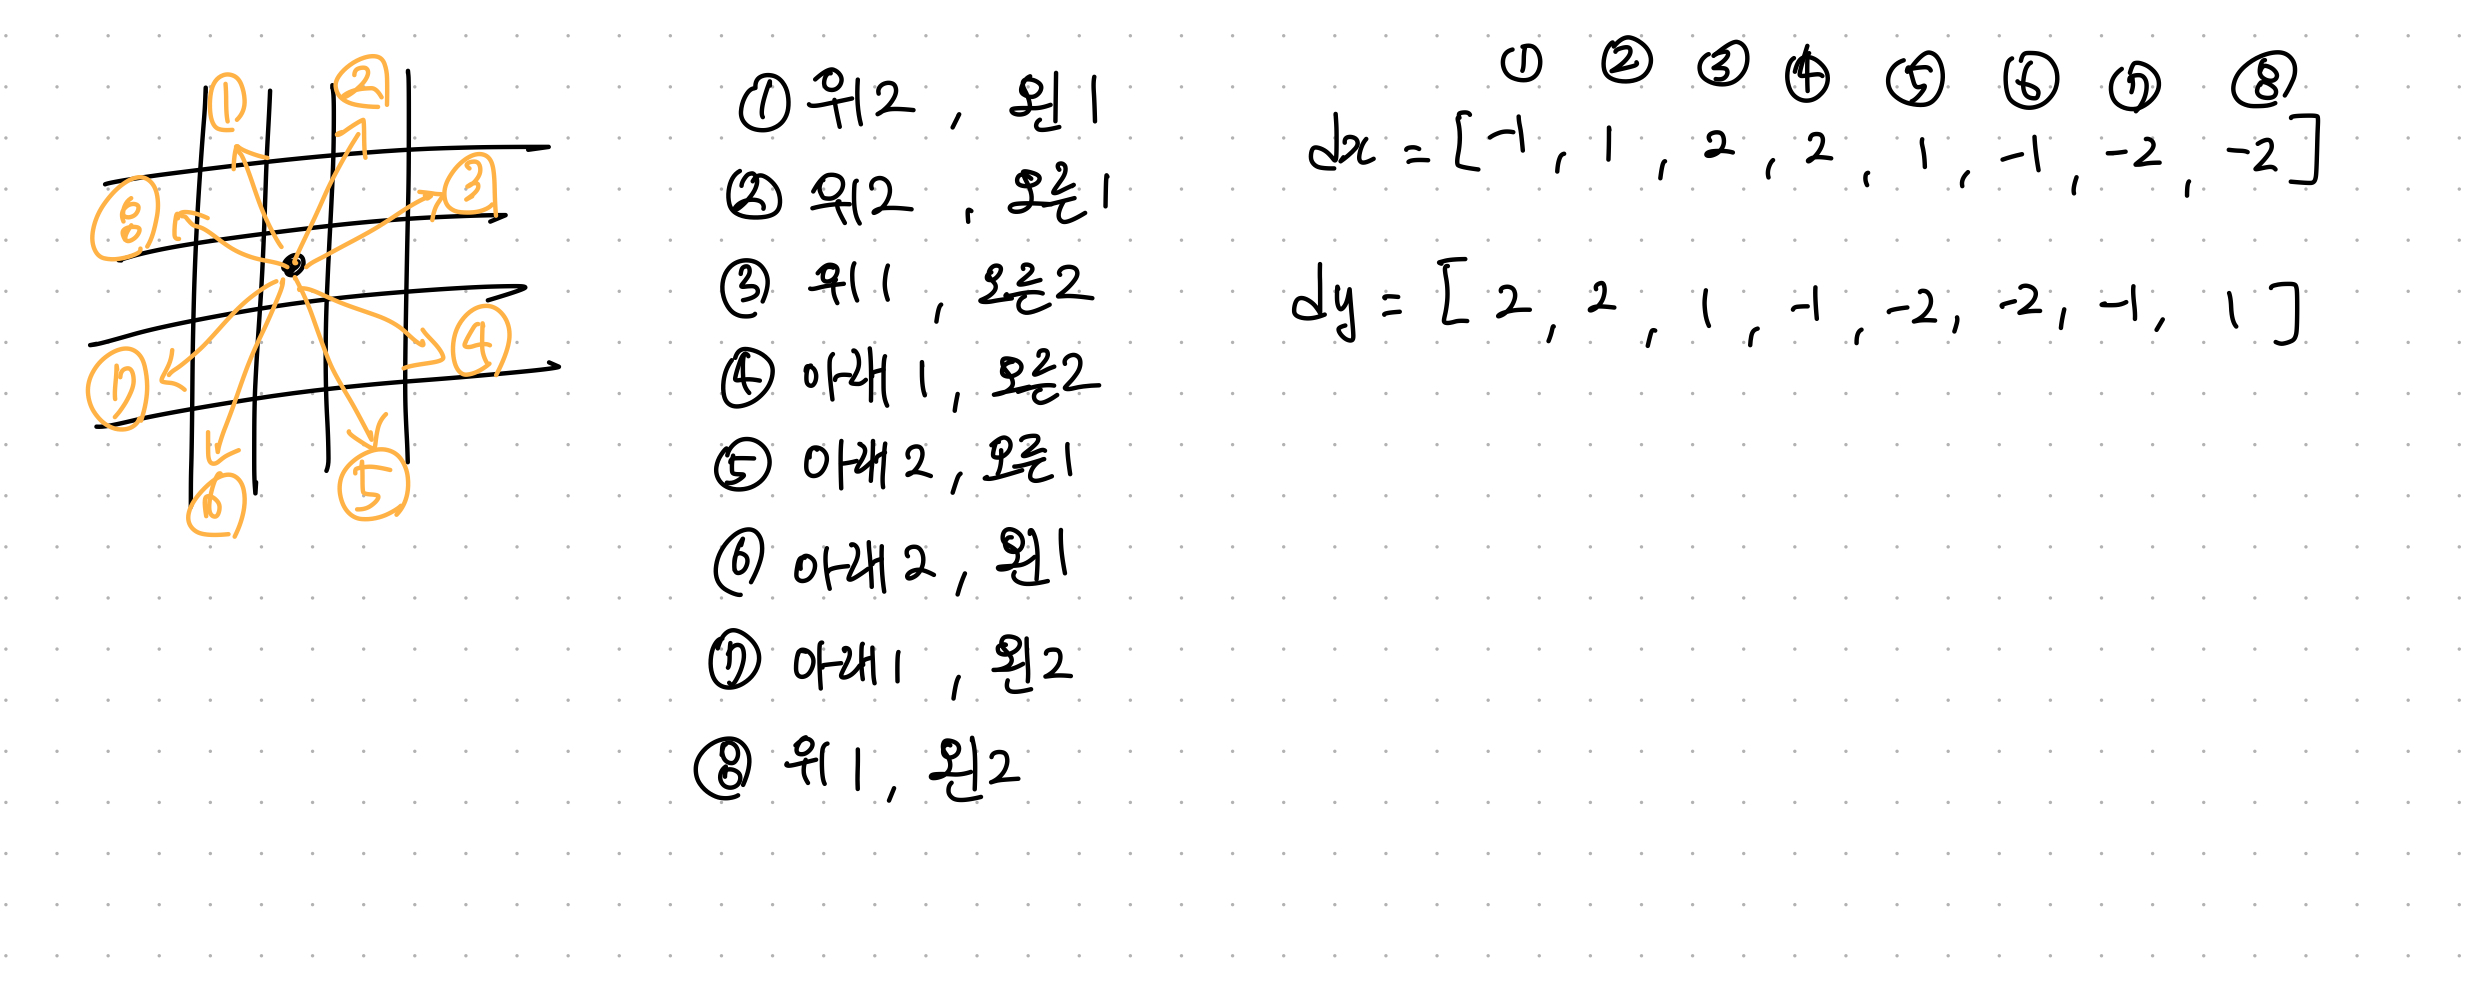 ① ② ③ ④ ⑤ ⑥ ⑦ ⑧
① 위2, 왼1
② 위2, 오른1
③ 위1, 오른2
④ 아래1, 오른2
⑤ 아래2, 오른1
⑥ 아래2, 왼1
⑦ 아래1, 왼2
⑧ 위1, 왼2
① ② ③ ④ ⑤ ⑥ ⑦ ⑧
dx = [-1, 1, 2, 2, 1, -1, -2, -2]
dy = [2, 2, 1, -1, -2, -2, -1, 1]